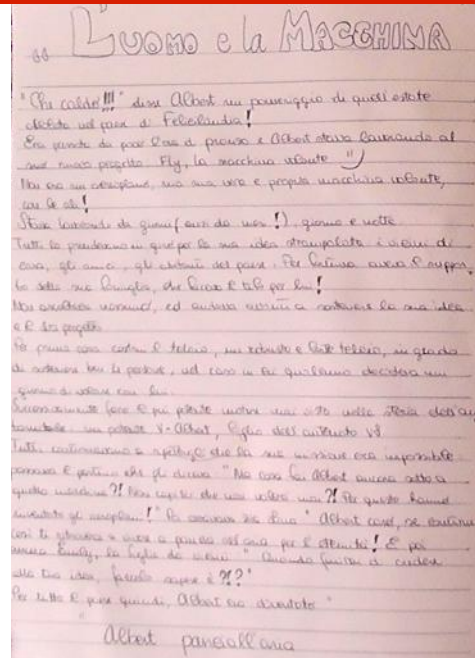 " L'UOMO e la MACCHINA
"Che caldo!!!" disse Albert un pomeriggio di quell'estate
nel paese di Felicilandia!
Era passata da poco l'ora di pranzo e Albert stava lavorando al
suo nuovo progetto Fly, la macchina volante
Non era un aeroplano, ma una vera e propria macchina volante,
con le ali!
Stava lavorando da giorni (anzi da mesi!), giorno e notte
Tutti lo prendevano in giro per la sua idea strampalata: i vicini di
casa, gli amici, gli abitanti del paese. Per fortuna aveva il suppor
to della sua famiglia, che faceva il tifo per lui!
Non ascoltava nessuno, ed andava avanti a sostenere la sua idea
e il suo progetto
Per prima cosa costruì il telaio, un robusto e forte telaio, in grado
di sostenere ben le persone, nel caso in cui qualcuno decideva un
giorno di volare con lui.
Successivamente fece il più potente motore mai visto nella storia dell'au
tomobile: un potente V-Albert, figlio dell'antenato V8
Tutti continuavano a che la sua missione era impossibile
passava il postino che gli diceva "Ma cosa fai Albert ancora sotto a
quella macchina?! Non capisci che non volerà mai?! Per questo hanno
inventato gli aeroplani!" " Albert caro, se continui
così ti a stare a pancia all'aria per l'eternità! E poi
Emily, la figlia del vicino "Quando finirai di credere
alla tua idea, fammelo sapere è ?!?"
Per tutto il paese quindi, Albert era diventato "
Albert panciall'aria